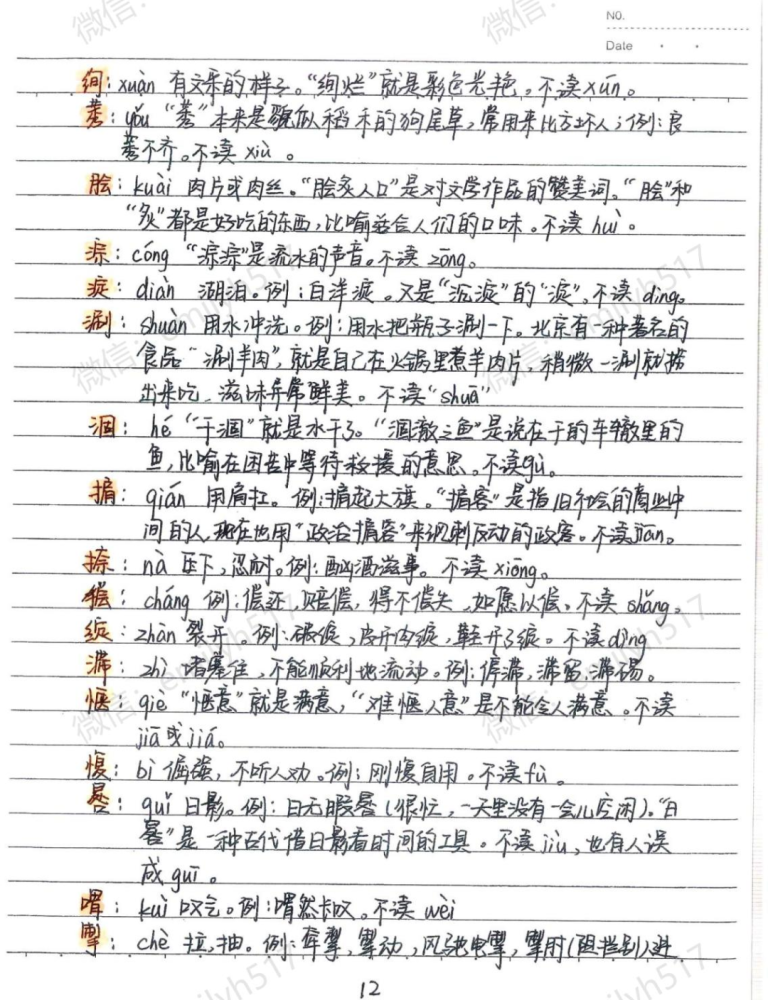 NO.
Date
绚：xuàn 有文采的样子。“绚烂”就是彩色光艳。不读xún。
莠：yǒu “莠”本来是貌似稻禾的狗尾草，常用来比方坏人；例：良
莠不齐。不读 xiù 。
脍：kuài 肉片或肉丝。“脍炙人口”是对文学作品的赞美词。“脍”和
“炙”都是好吃的东西，比喻适合人们的口味。不读 huì 。
淙：cóng “淙淙”是流水的声音。不读 zōng。
淀：diàn 湖泊。例：白洋淀。又是“沉淀”的“淀”，不读 dìng。
涮：shuàn 用水冲洗。例：用水把瓶子涮一下。北京有一种著名的
食品“涮羊肉”，就是自己在火锅里煮羊肉片，稍微一涮就捞
出来吃，滋味异常鲜美。不读“shuā”
涸：hé “干涸”就是水干了。“涸辙之鱼”是说在干的车辙里的
鱼，比喻在困苦中等待救援的意思。不读gù。
掮：qián 用肩扛。例：掮起大旗。“掮客”是指旧社会的商业中
间的人，现在也用“政治掮客”来讽刺反动的政客。不读jiān。
捺：nà 压下，忍耐。例：酗酒滋事。不读 xiōng。
偿：cháng 例：偿还，赔偿，得不偿失，如愿以偿。不读 shǎng。
绽：zhàn 裂开。例：破绽，皮开肉绽，鞋开了绽。不读 dìng
滞：zhì 堵塞住，不能顺利地流动。例：停滞，滞留，滞碍。
惬：qiè “惬意”就是满意，“难惬人意”是不能令人满意。不读
jiā或jiá。
愎：bì 倔强，不听人劝。例：刚愎自用。不读fù 。
晷：guǐ 日影。例：日无暇晷（很忙，一天里没有一会儿空闲）。“日
晷”是一种古代借日影看时间的工具。不读 jiù，也有人误
成 guī 。
喟：kuì 叹气。例：喟然长叹。不读 wèi
掣：chè 拉，抽。例：牵掣，掣动，风驰电掣，掣肘（阻挡别人进
12
微信：emilyh517